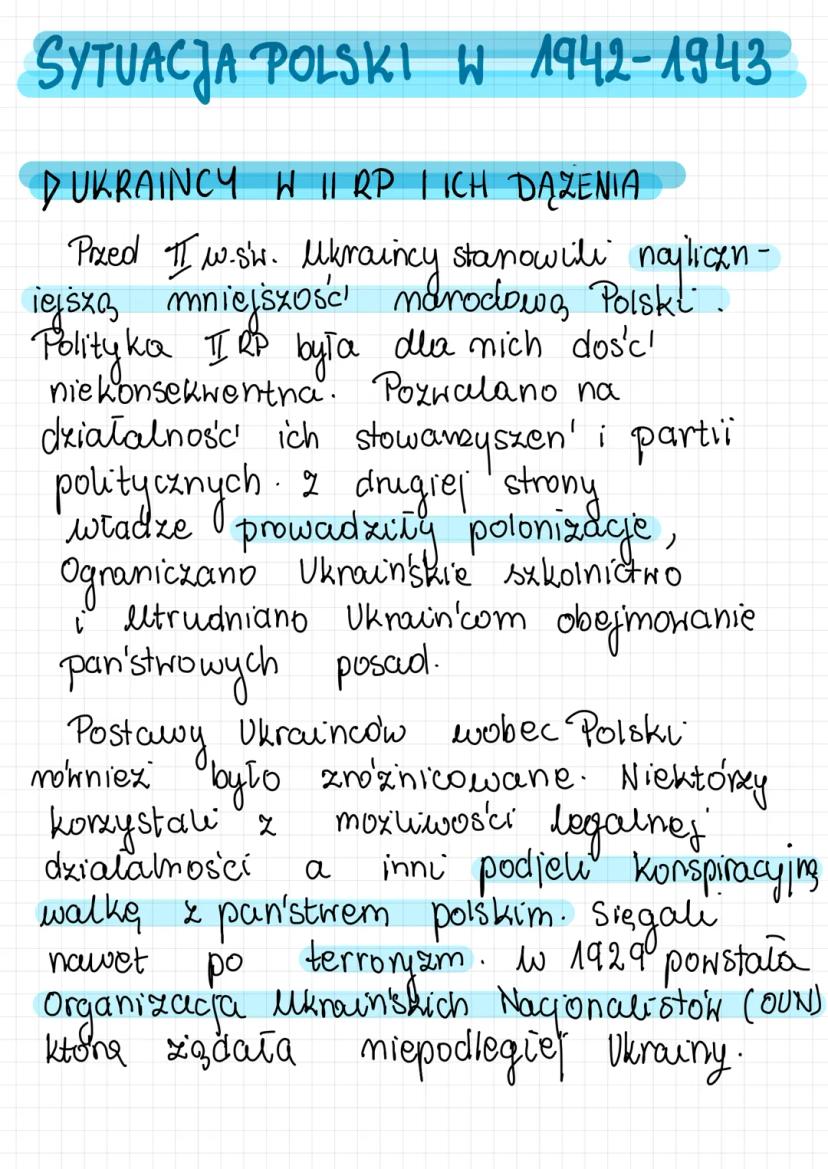 SYTUACJA POLSKI W 1942-1943
▷ UKRAINCY W II RP I ICH DĄŻENIA
Przed II w.św. Ukraincy stanowili najliczn-
iejszą mniejszość narodową Polski.
Polityka II RP była dla nich dość
niekonsekwentna. Pozwalano na
działalność ich stowarzyszeń i partii
politycznych. Z drugiej strony
władze prowadziły polonizacje,
Ograniczano Ukraińskie szkolnictwo
i Utrudniano Ukraińcom obejmowanie
państwowych posad.
Postawy Ukrainców wobec Polski
również było zróżnicowane. Niektórzy
korzystali z możliwości legalnej
działalności a inni podjeli konspiracyjną
walkę z państwem polskim. Sięgali
nawet po terroryzm. W 1929 powstała
Organizacja Ukraińskich Nacjonalistów (OUN)
którą ziądała niepodległej Ukrainy.